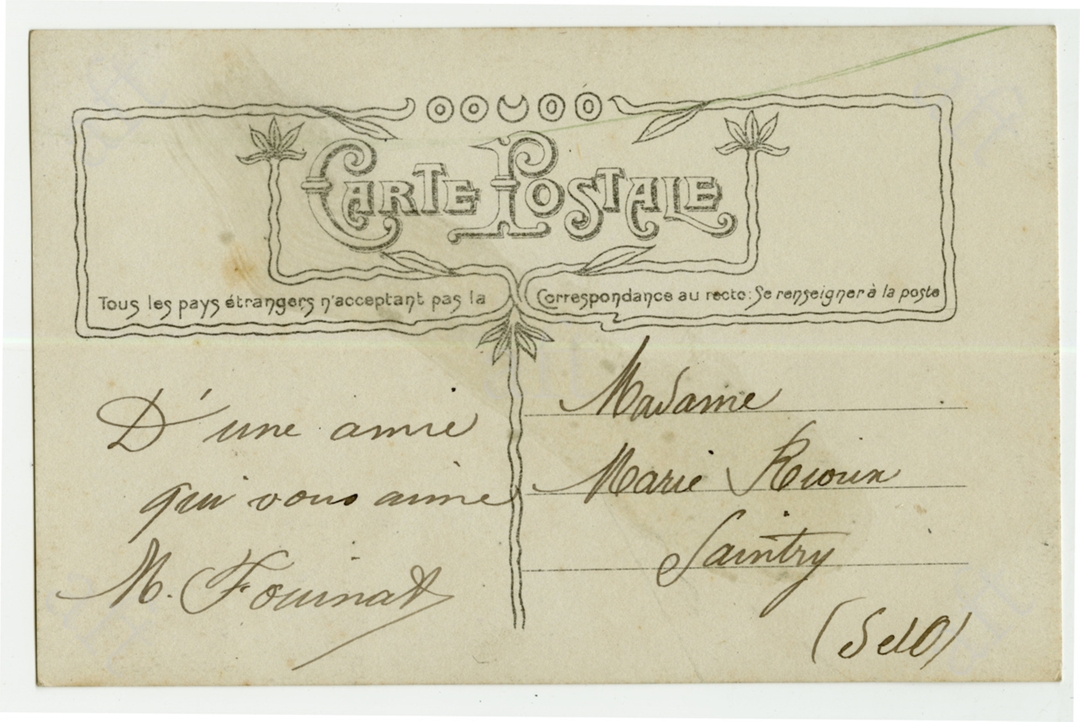 CARTE POSTALE
Tous les pays étrangers n'acceptant pas la Correspondance au recto: Se renseigner à la poste
D'une amie
qui vous aime
M. Fouinat
Madame
Marie Rioux
Saintry
(S et O)